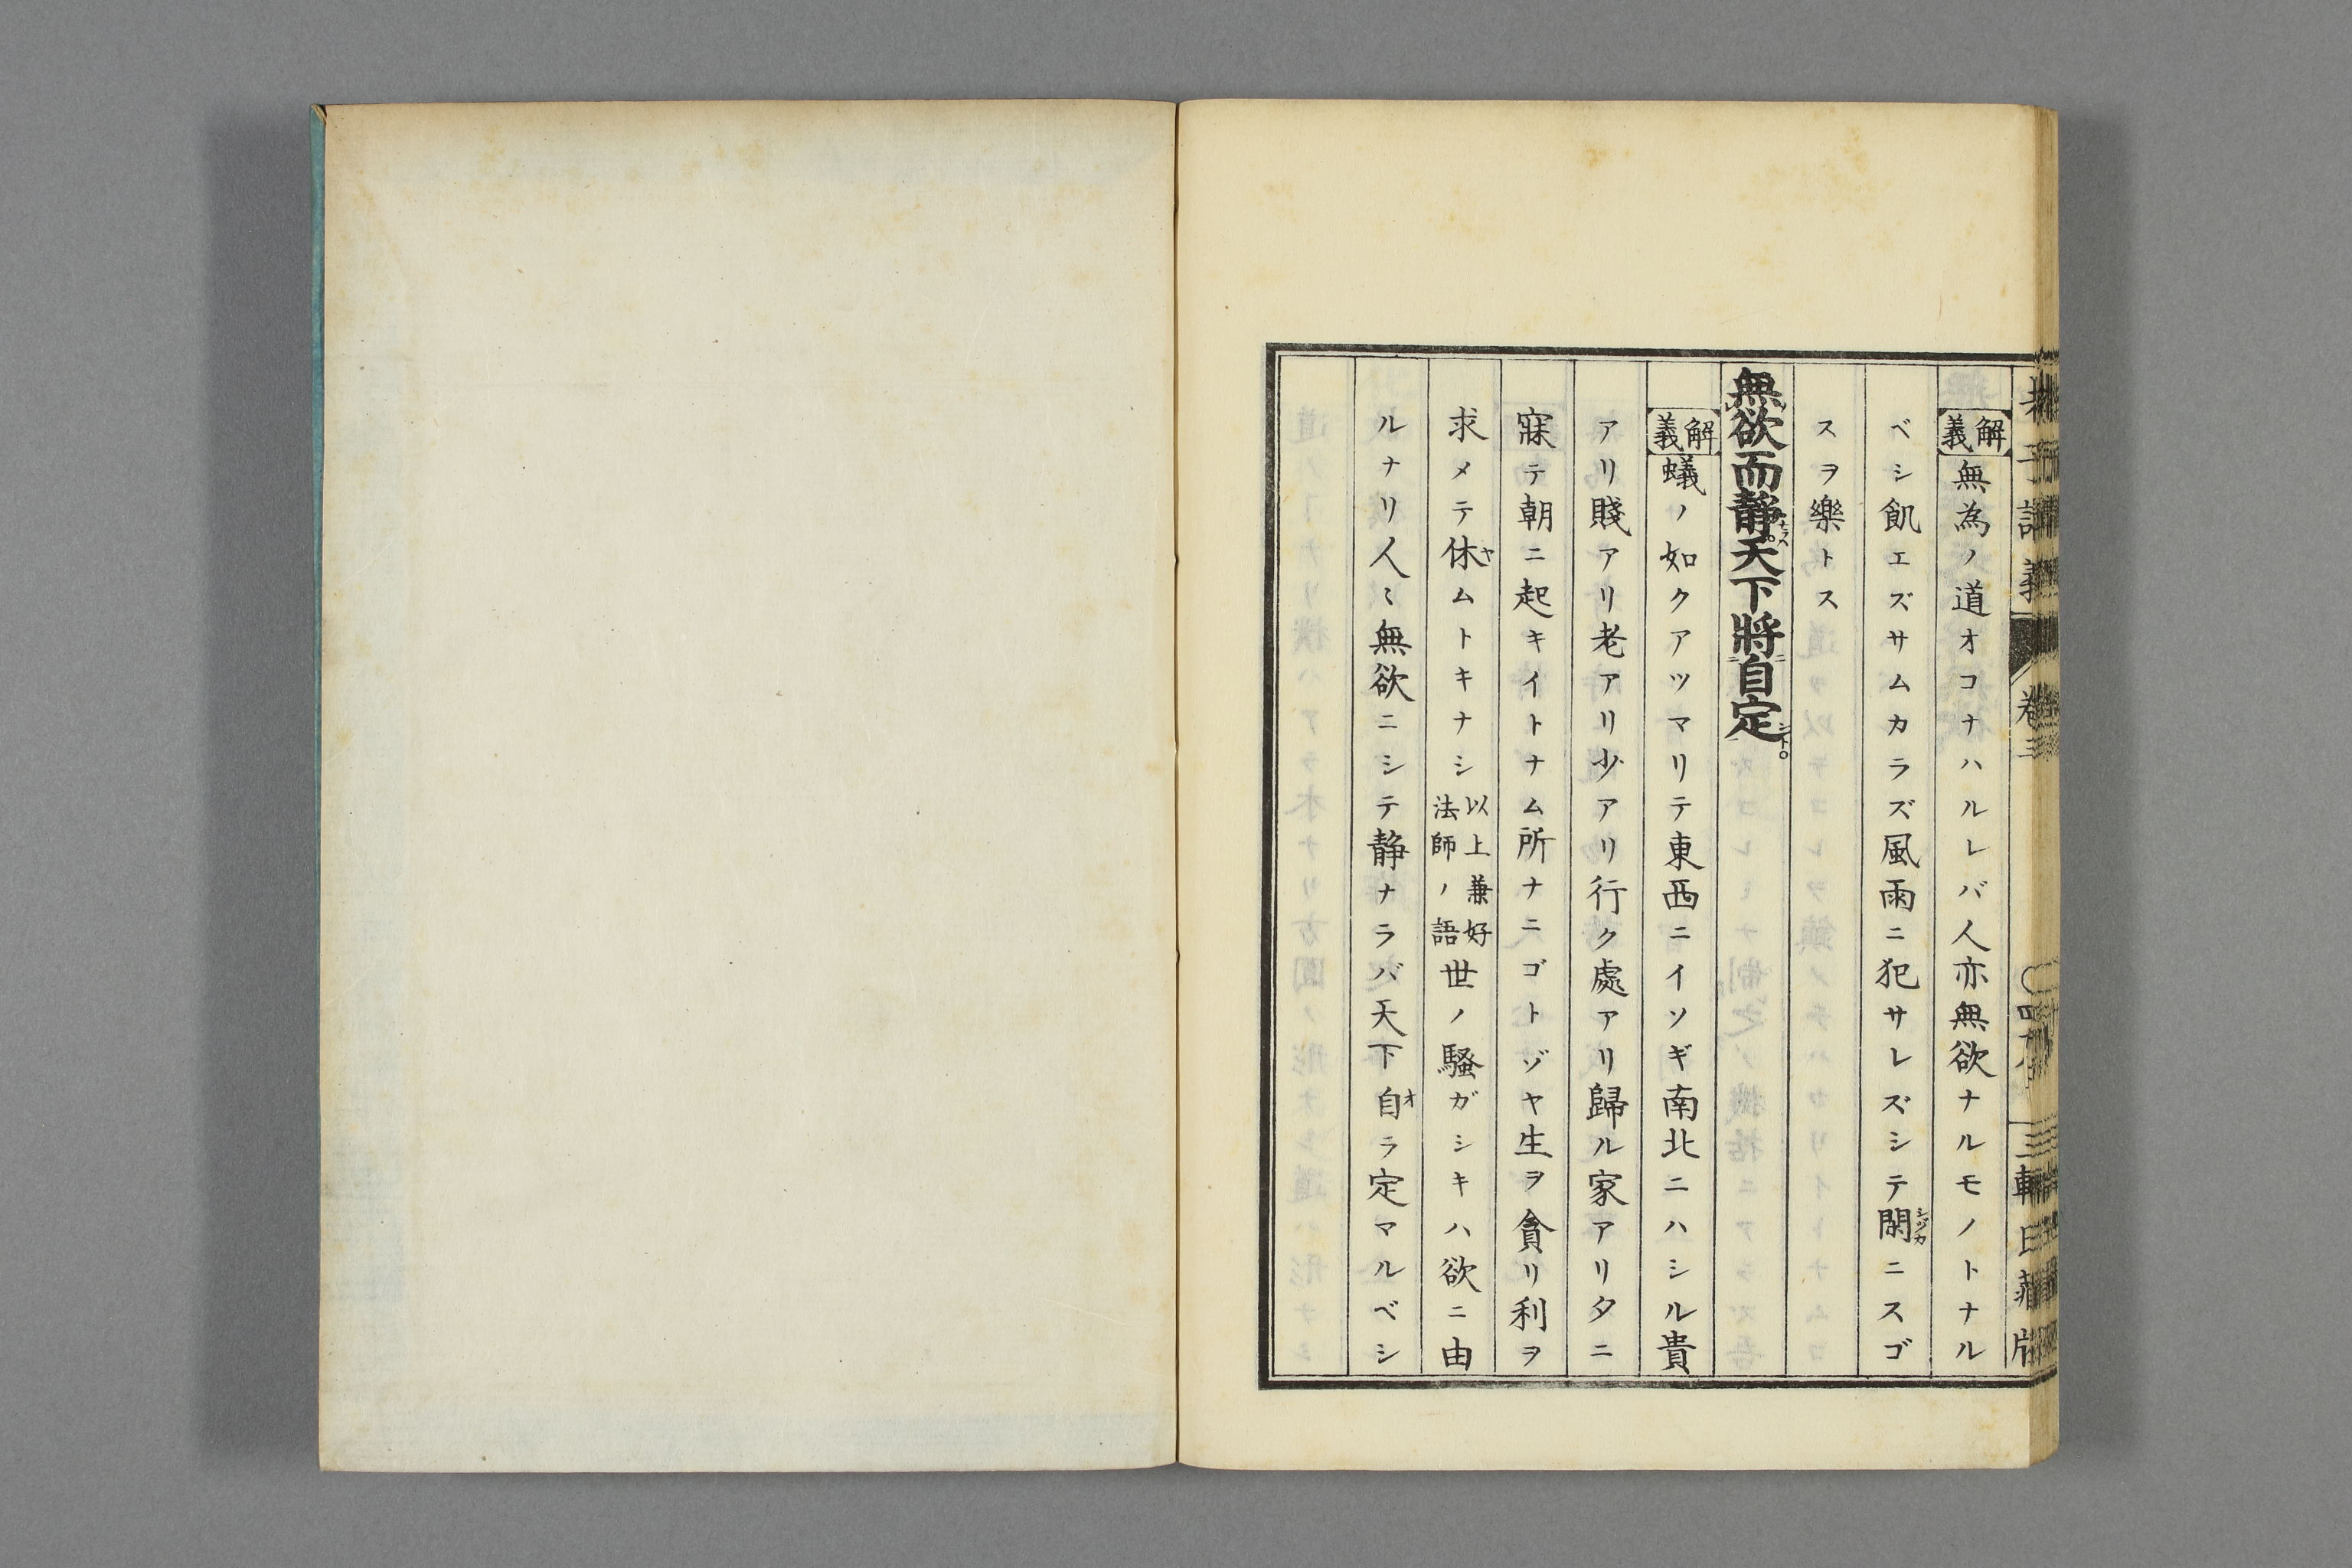 解義 無為ノ道オコナハルレバ人亦無欲ナルモノトナル
ベシ飢エズサムカラズ風雨ニ犯サレズシテ閑シヅカニスゴ
スヲ樂トス
無欲而静天下將自定
解義 蟻ノ如クアツマリテ東西ニイソギ南北ニハシル貴
アリ賤アリ老アリ少アリ行ク處アリ歸ル家アリタニ
寐テ朝ニ起キイトナム所ナニゴトゾヤ生ヲ貪リ利ヲ
求メテ休ヤムトキナシ以上兼好法師ノ語世ノ騷ガシキハ欲ニ由
ルナリ人〻無欲ニシテ静ナラバ天下自オラ定マルベシ